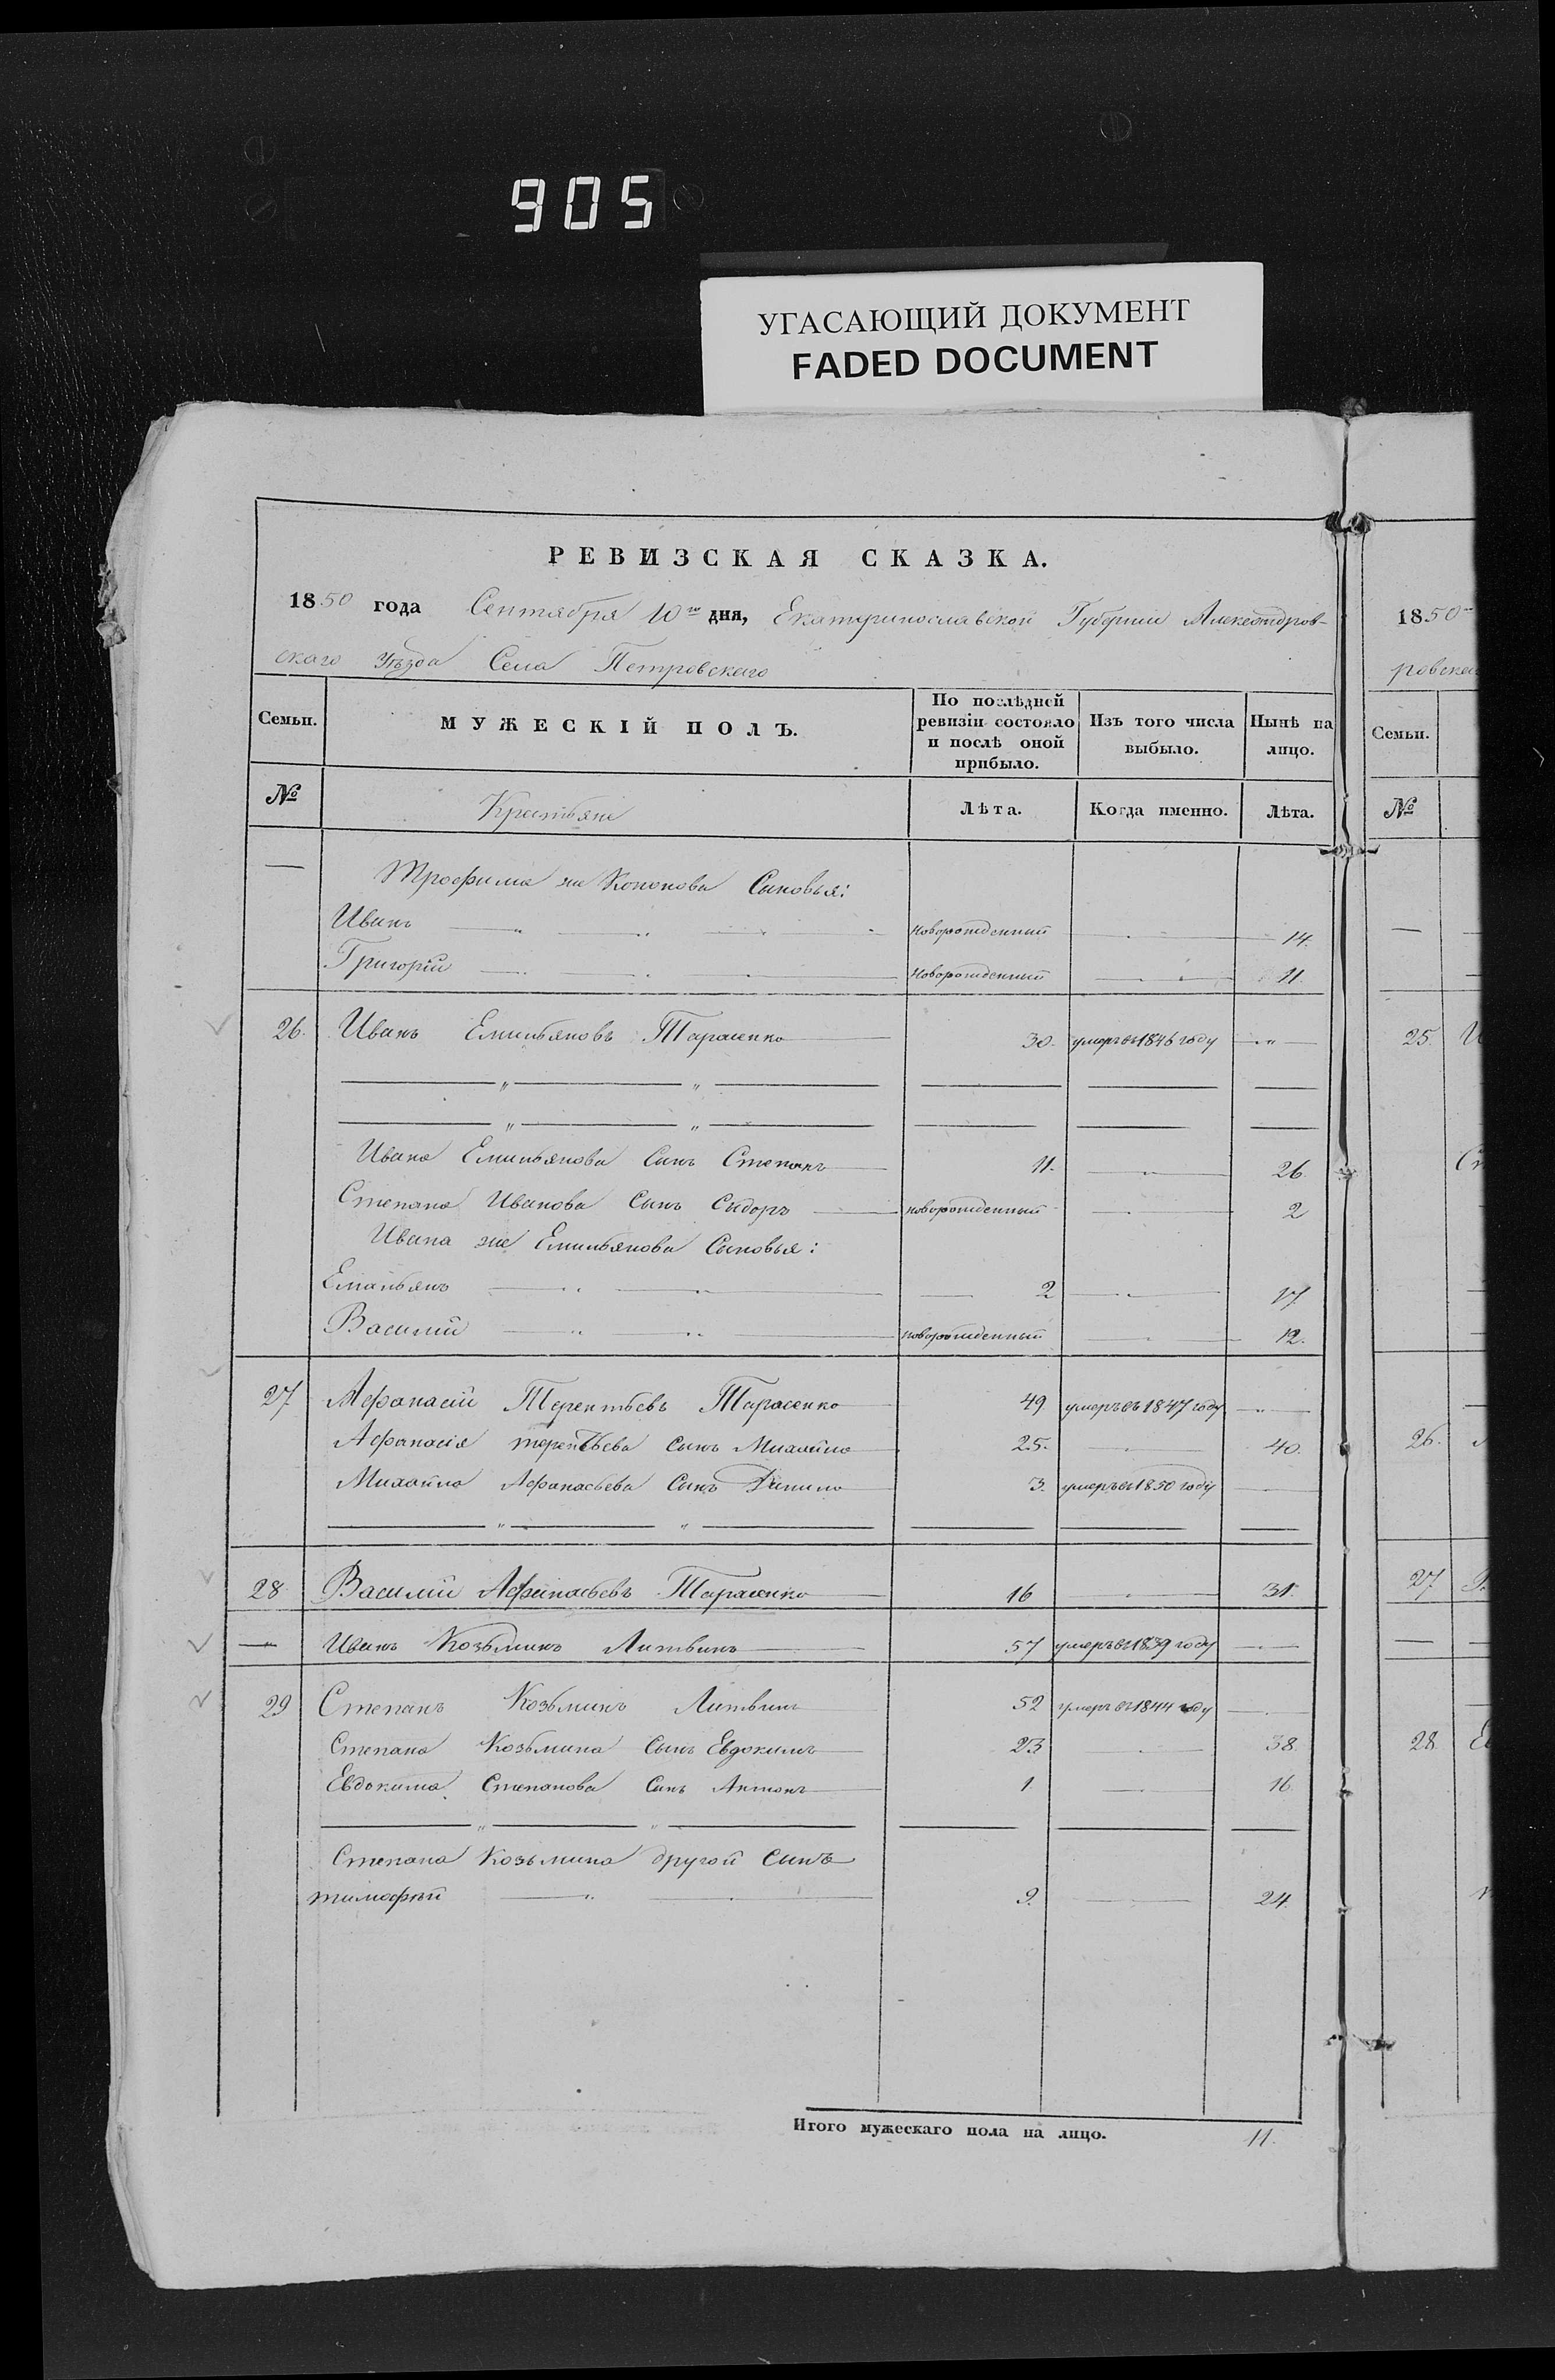 905
УГАСАЮЩИЙ ДОКУМЕНТ
FADED DOCUMENT
РЕВИЗСКАЯ СКАЗКА.
1850 года Сентября 10го дня, Екатеринославской Губернии Александров-
скаго Уѣзда Села Петровскаго
Семьи. МУЖЕСКІЙ ПОЛЪ. По послѣдней ревизіи состояло и послѣ оной прибыло. Изъ того числа выбыло. Нынѣ на лицо.
№ Крестьяне Лѣта. Когда именно. Лѣта.
— Трофима же Кононова Сыновья:
Иванъ новорожденный 14.
Григорій новорожденный 11.
26. Иванъ Емильяновъ Тарасенко 30. умеръ въ 1846 году
Ивана Емильянова Сынъ Степанъ 11. 26.
Степана Иванова Сынъ Сидоръ новорожденный 2
Ивана же Емильянова Сыновья:
Емильянъ 2 17
Василій новорожденный 12.
27 Афанасій Терентьевъ Тарасенко 49 умеръ въ 1847 году
Афанасія терентьева сынъ Михайло 25. 40.
Михайла Афанасьева Сынъ Данило 3. умеръ въ 1850 году
28 Василій Афанасьевъ Тарасенко 16 31.
— Иванъ Козьминъ Литвинъ 57 умеръ въ 1839 году
29 Степанъ Козьминъ Литвинъ 52 умеръ въ 1844 году
Степана Козьмина Сынъ Евдокимъ 23 38.
Евдокима Степанова Сынъ Антонъ 1 16.
Степана Козьмина другой Сынъ
тимофѣй 9. 24.
Итого мужескаго пола на лицо. 11.
1850
ровска
Семьи.
№
25.
26.
27
28.